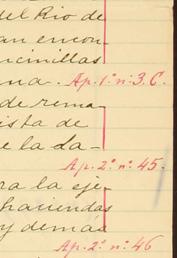 del Rio de
an encon-
icinillas
na. Ap. 1º nº 3. C.
de rema-
ista de
e la da-
Ap. 2º nº 45.
ra la eje-
haciendas
y demás
Ap. 2º nº 46